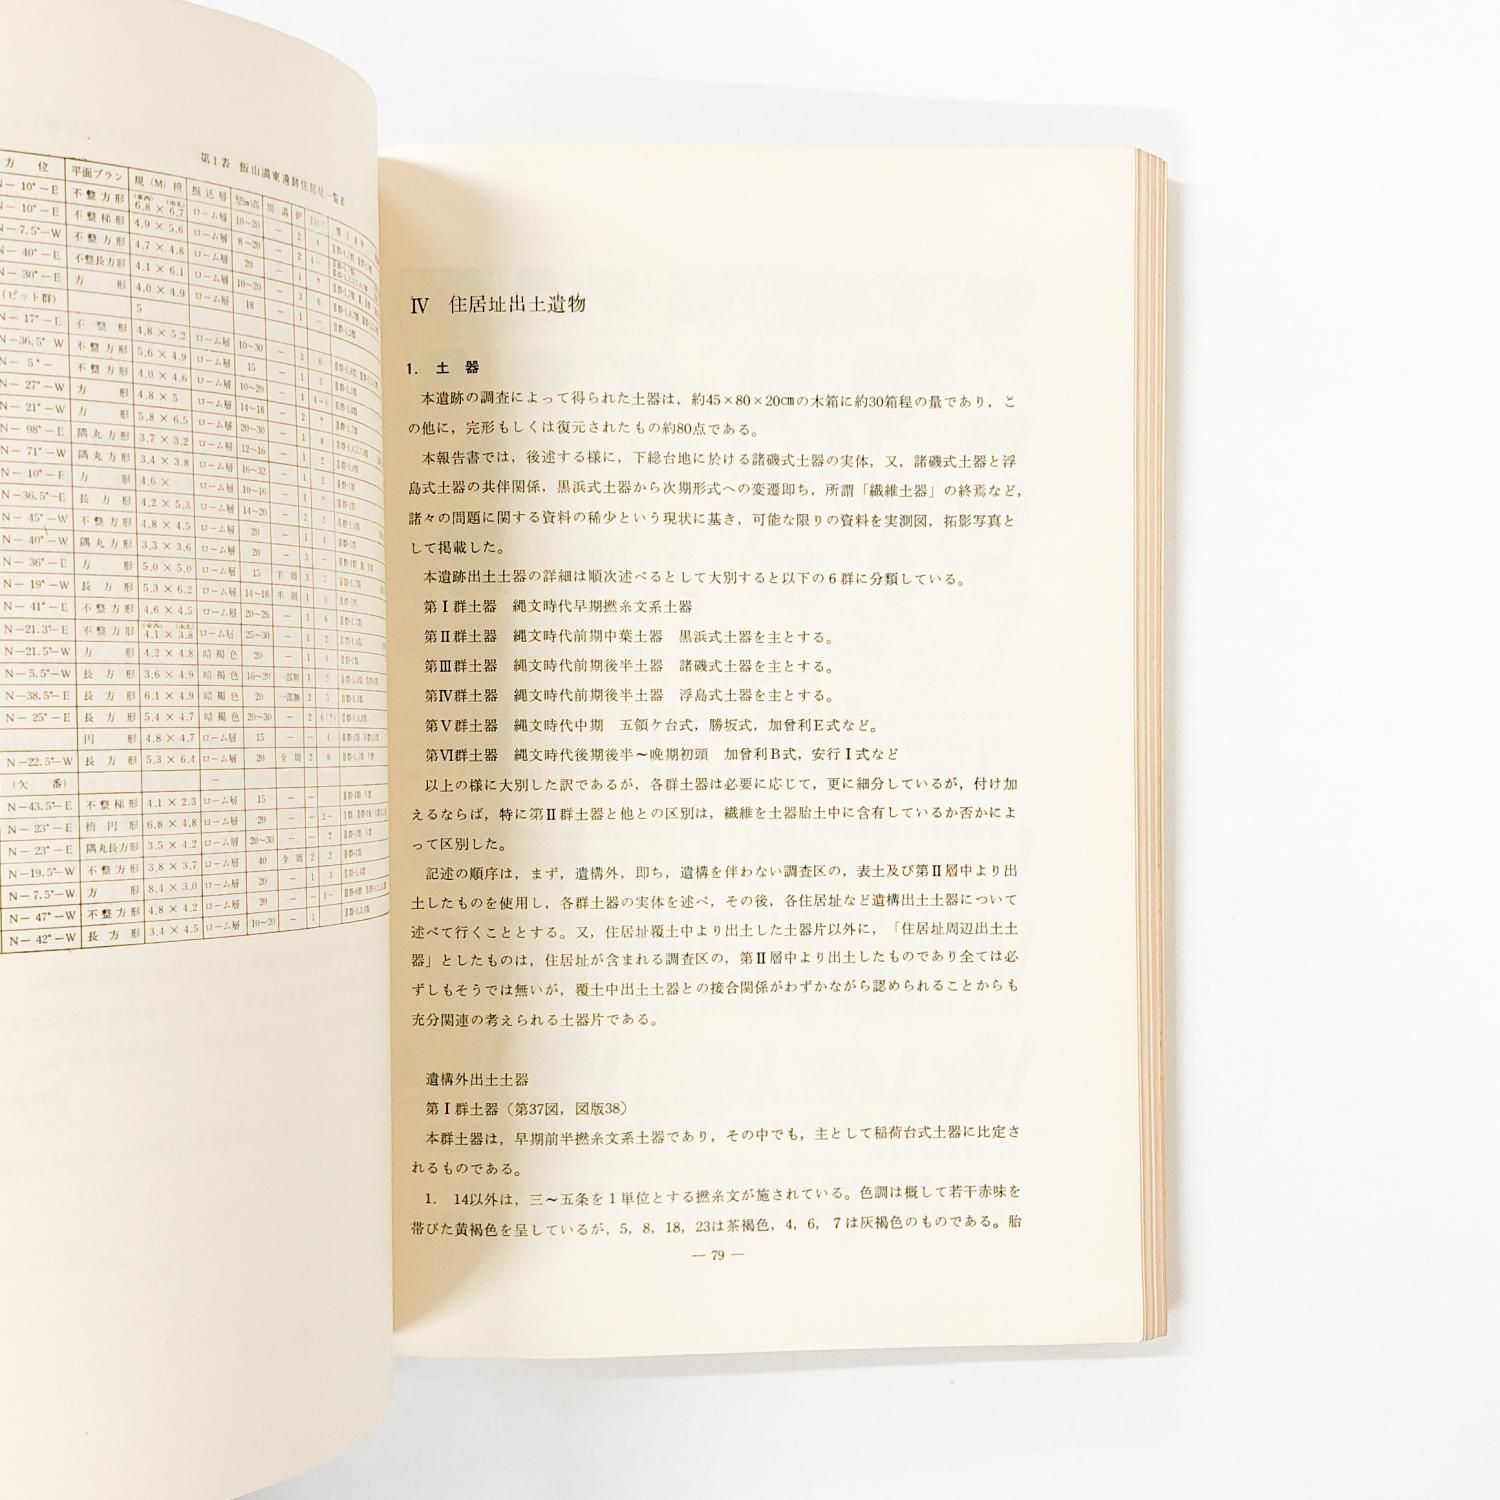 第1表 飯山満東遺跡住居址一覧表
方 位 平面プラン 規(M)模 掘込層 周溝 炉
N-10°-E 不整方形 6.8×6.7 ローム層 10~20 - 2 4
N-10°-E 不整梯形 4.9×5.6 ローム層 8~20
N-7.5°-W 不整方形 4.7×4.8 ローム層 20
N-40°-E 不整長方形 4.1×6.1 ローム層 10~20
N-30°-E 方形 4.0×4.9 ローム層 18
(ピット群) 5
N-17°-E 不整形 4.8×5.2 ローム層 10~30
N-36.5°W 不整方形 5.6×4.9 ローム層 15
N-5°- 不整方形 4.0×4.6 ローム層 10~20
N-27°-W 方形 4.8×5 ローム層 14~18
N-21°-W 方形 5.8×6.5 ローム層 20~30
N-98°-E 隅丸方形 3.7×3.2 ローム層 12~16
N-71°-W 隅丸方形 3.4×3.8 ローム層 16~32
N-10°-E 方形 4.6× ローム層 10~16
N-36.5°-E 長方形 4.2×5.3 ローム層 14~20
N-45°-W 不整方形 4.8×4.5 ローム層 20
N-40°-W 隅丸方形 3.3×3.6 ローム層 20
N-36°-E 方形 5.0×5.0 ローム層 15 半周 3 7
N-19°-W 長方形 5.3×6.2 ローム層 14~18 半周 1
N-41°-E 不整方形 4.6×4.5 ローム層 20~26 - 1 6
N-21.3°-E 不整方形 4.1×3.8 ローム層 25~30 - 1 2
N-21.5°-W 方形 4.2×4.8 暗褐色 20 - 1 4
N-5.5°-W 長方形 3.6×4.9 暗褐色 16~20 一部無 1 2
N-38.5°-E 長方形 6.1×4.9 暗褐色 20 一部無 2 5
N-25°-E 長方形 5.4×4.7 暗褐色 20~30 - 2
円形 4.8×4.7 ローム層 15 - - 4
N-22.5°-W 長方形 5.3×6.4 ローム層 20 全周 2 6
(欠番) -
N-43.5°-E 不整梯形 4.1×2.3 ローム層 15 - -
N-23°-E 楕円形 6.8×4.8 ローム層 20 - - 2~
N-23°-E 隅丸長方形 3.5×4.2 ローム層 20~30 - - 2
N-19.5°-W 不整方形 3.8×3.7 ローム層 40 全周 2 2
N-7.5°-W 方形 8.4×3.0 ローム層 20 - 1 3
N-47°-W 不整方形 4.8×4.2 ローム層 20 - - 1~
N-42°-W 長方形 3.4×4.5 ローム層 10~20 - 1
Ⅳ 住居址出土遺物
1. 土器
本遺跡の調査によって得られた土器は,約45×80×20㎝の木箱に約30箱程の量であり,こ
の他に,完形もしくは復元されたもの約80点である。
本報告書では,後述する様に,下総台地に於ける諸磯式土器の実体,又,諸磯式土器と浮
島式土器の共伴関係,黒浜式土器から次期形式への変遷即ち,所謂「繊維土器」の終焉など,
諸々の問題に関する資料の稀少という現状に基き,可能な限りの資料を実測図,拓影写真と
して掲載した。
本遺跡出土土器の詳細は順次述べるとして大別すると以下の6群に分類している。
第Ⅰ群土器 縄文時代早期撚糸文系土器
第Ⅱ群土器 縄文時代前期中葉土器 黒浜式土器を主とする。
第Ⅲ群土器 縄文時代前期後半土器 諸磯式土器を主とする。
第Ⅳ群土器 縄文時代前期後半土器 浮島式土器を主とする。
第Ⅴ群土器 縄文時代中期 五領ケ台式,勝坂式,加曾利E式など。
第Ⅵ群土器 縄文時代後期後半~晩期初頭 加曾利B式,安行Ⅰ式など
以上の様に大別した訳であるが,各群土器は必要に応じて,更に細分しているが,付け加
えるならば,特に第Ⅱ群土器と他との区別は,繊維を土器胎土中に含有しているか否かによ
って区別した。
記述の順序は,まず,遺構外,即ち,遺構を伴わない調査区の,表土及び第Ⅱ層中より出
土したものを使用し,各群土器の実体を述べ,その後,各住居址など遺構出土土器について
述べて行くこととする。又,住居址覆土中より出土した土器片以外に,「住居址周辺出土土
器」としたものは,住居址が含まれる調査区の,第Ⅱ層中より出土したものであり全ては必
ずしもそうでは無いが,覆土中出土土器との接合関係がわずかながら認められることからも
充分関連の考えられる土器片である。
遺構外出土土器
第Ⅰ群土器(第37図,図版38)
本群土器は,早期前半撚糸文系土器であり,その中でも,主として稲荷台式土器に比定さ
れるものである。
1. 14以外は,三~五条を1単位とする撚糸文が施されている。色調は概して若干赤味を
帯びた黄褐色を呈しているが,5,8,18,23は茶褐色,4,6,7は灰褐色のものである。胎
— 79 —